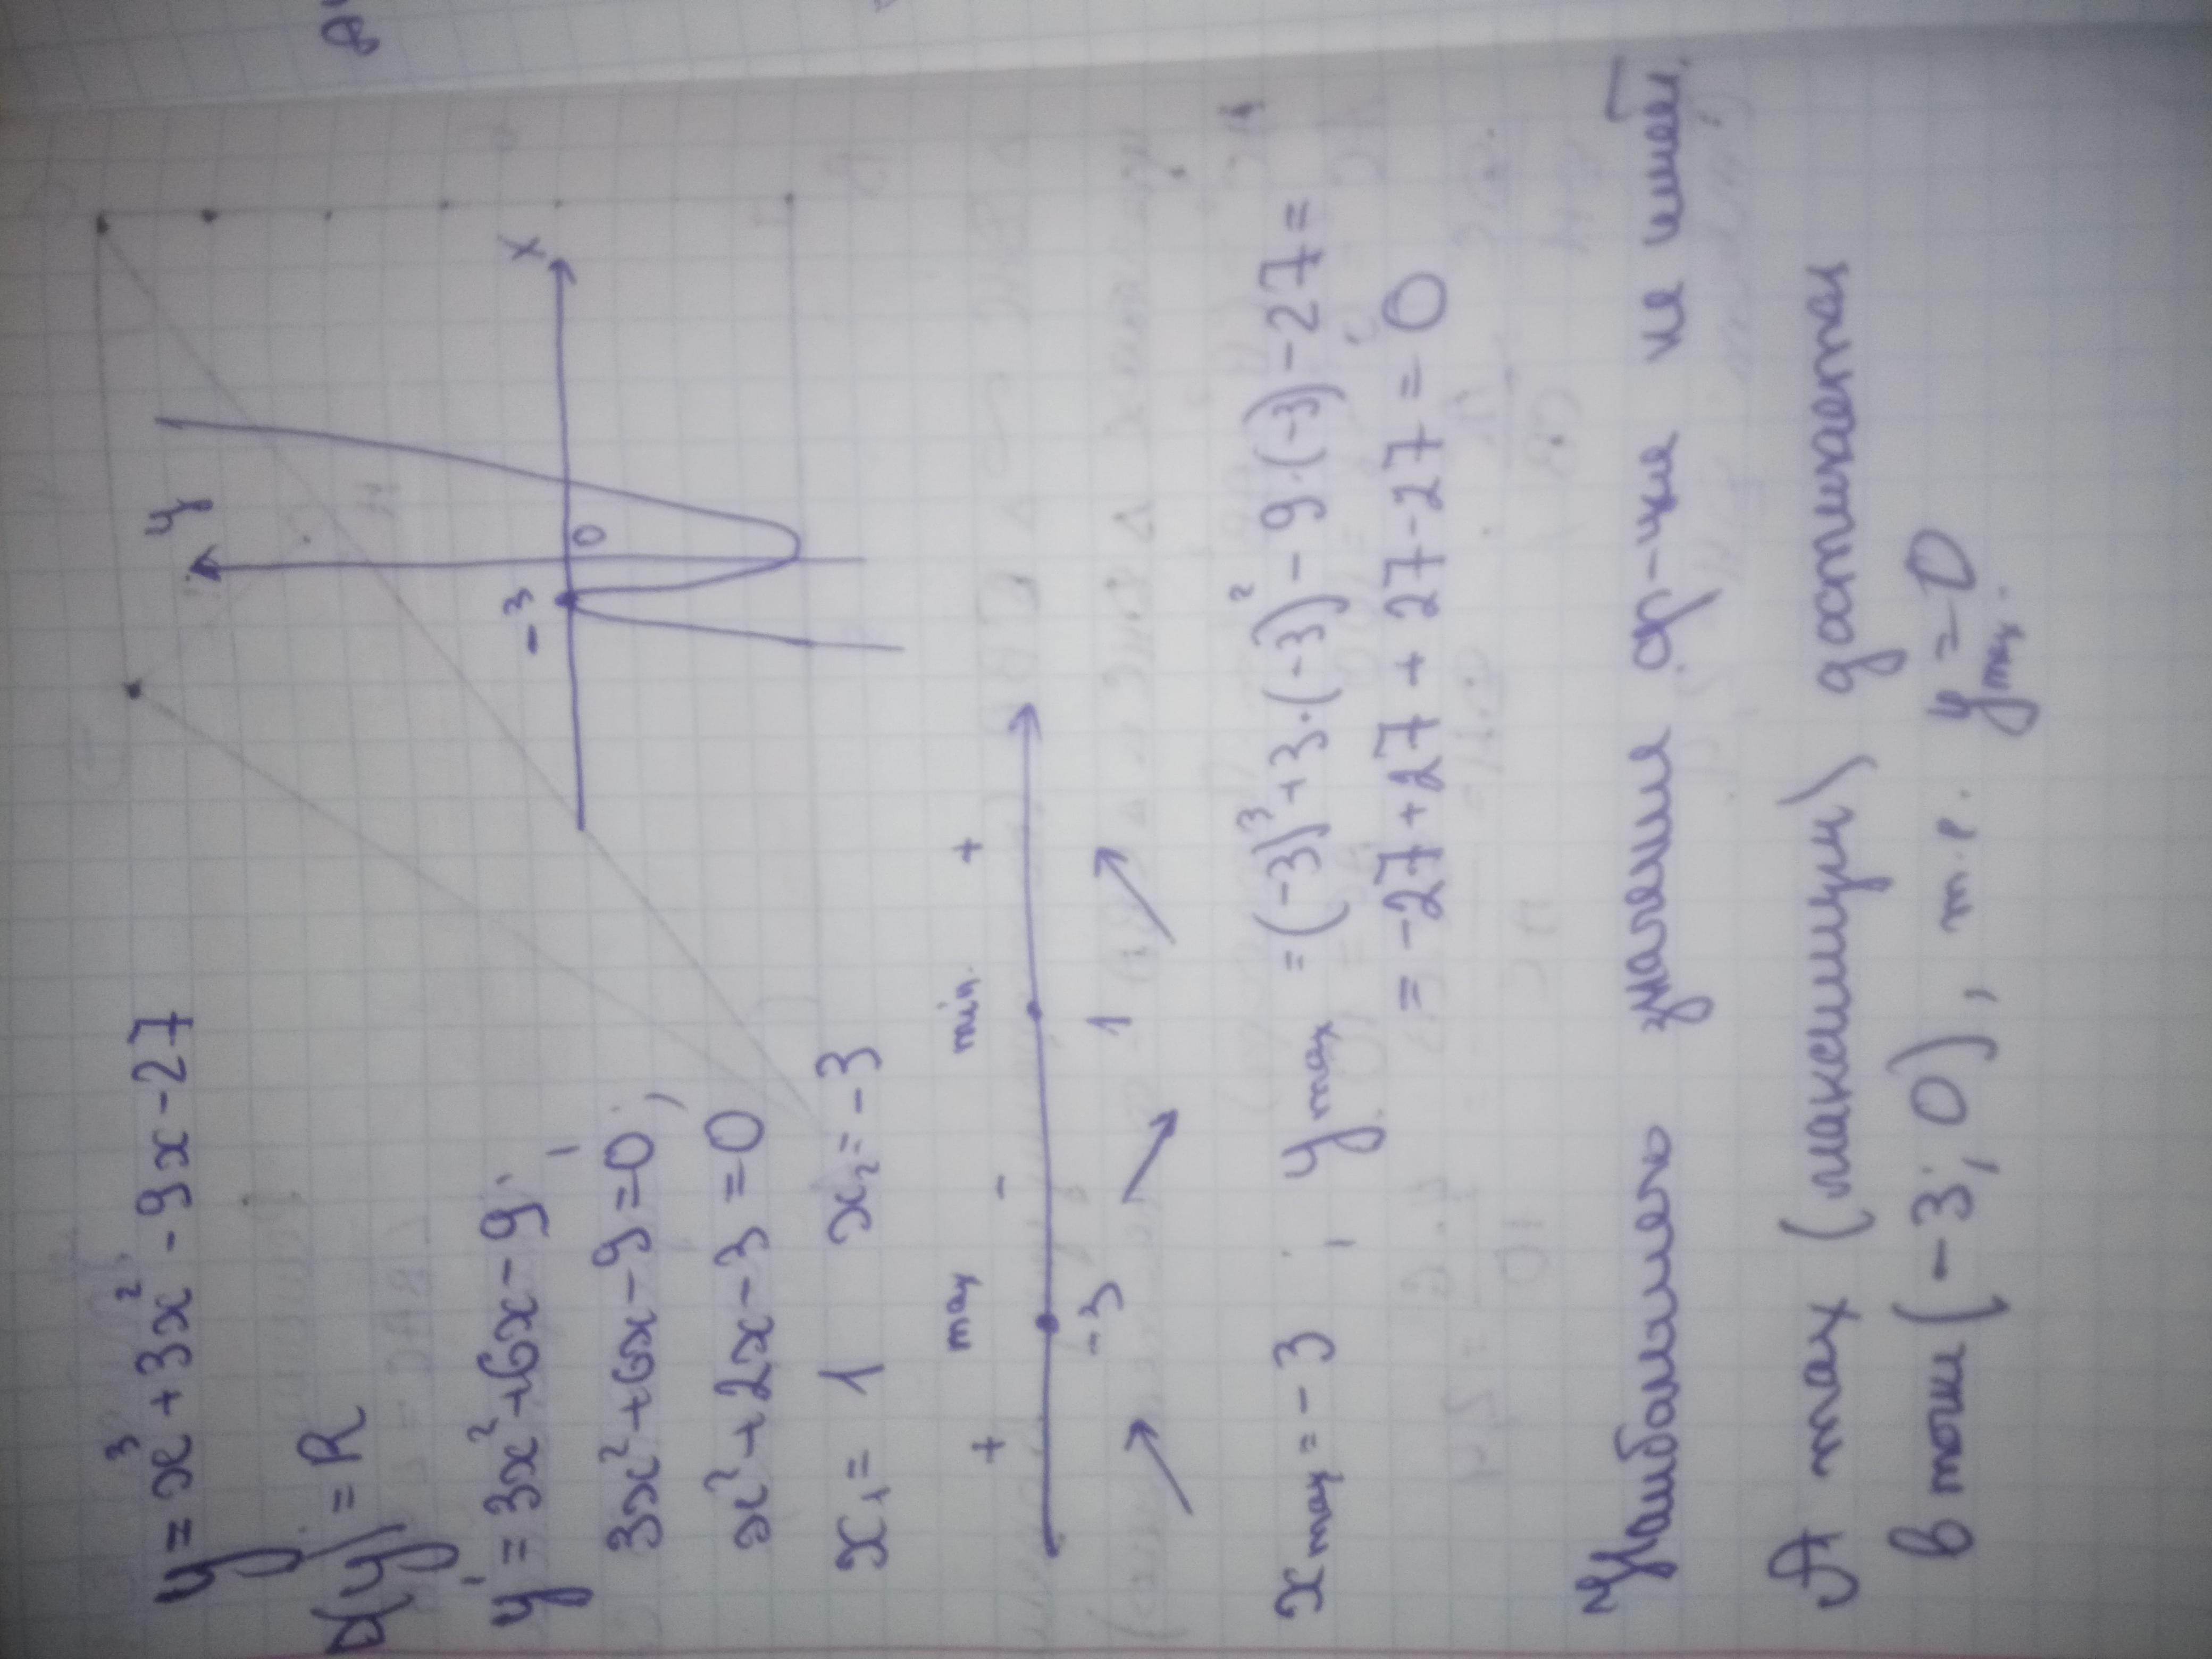 y = x³ + 3x² - 9x - 27
D(y) = R
y' = 3x² + 6x - 9;
3x² + 6x - 9 = 0;
x² + 2x - 3 = 0
x₁ = 1 x₂ = -3
y
x
-3
0
max min.
+ - +
-3 1
x max = -3 ; y max = (-3)³ + 3·(-3)² - 9·(-3) - 27 =
= -27 + 27 + 27 - 27 = 0
Наибольшего значения ф-ция не имеет,
А max (максимум) достигается
в точке (-3; 0), т.е. y max. = 0